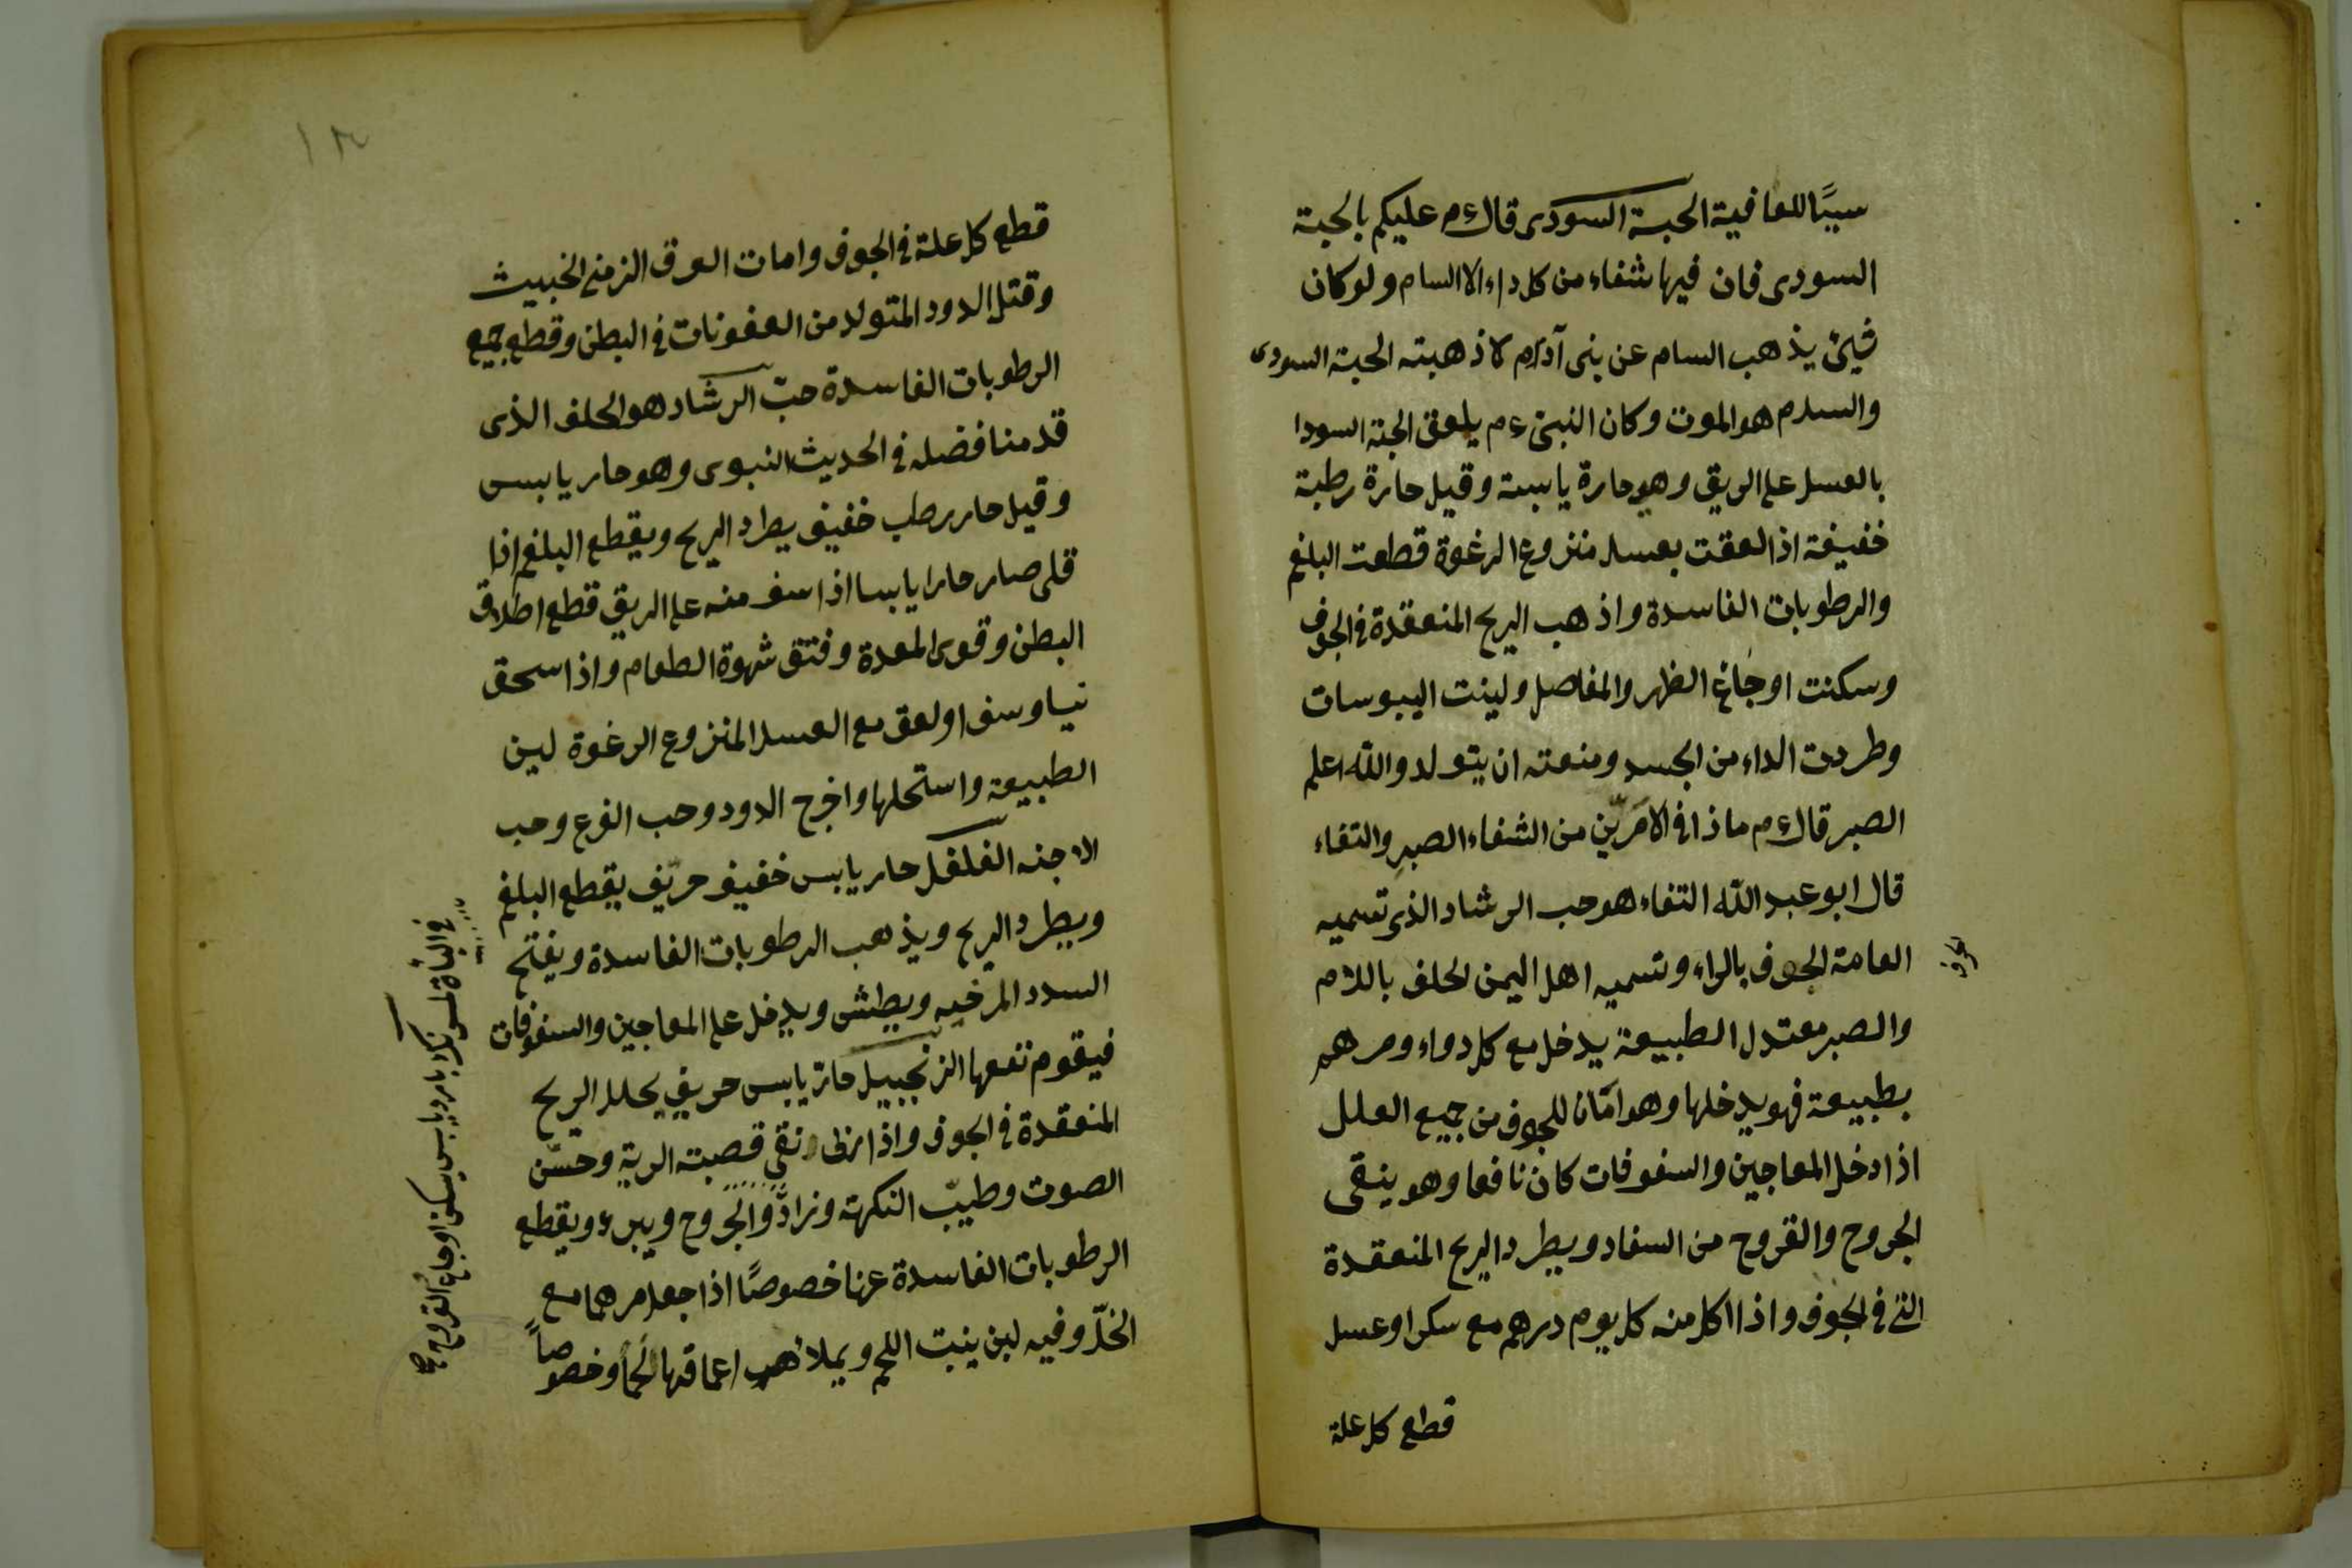 سببًا للعافية الحبة السودى قال ءم عليكم بالحبة
السودى فان فيها شفاء من كل داء الا السام ولو كان
شيئ يذهب السام عن بنى آدام لاذهبته الحبة السودى
والسام هو الموت وكان النبى ءم يلعق الحبة السودا
بالعسل على الريق وهو حارة يابسة وقيل حارة رطبة
خفيفة اذا لعقت بعسل منزوع الرغوة قطعت البلغم
والرطوبات الفاسدة واذهب الريح المنعقدة فى الجوف
وسكنت اوجاع الظهر والمفاصل ولينت اليبوسات
وطردت الداء من الجسد ومنعته ان يتولد والله اعلم
الصبر قال ءم ماذا فى الامَرّين من الشفاء الصبرِ والتفاء
قال ابو عبد الله التفاء هو حب الرشاد الذى تسميه
العامة الحوف بالراء وتسميه اهل اليمن لحلف باللام
والصبر معتدل الطبيعة يدخل مع كل دواء ومرهم
بطبيعة فهو يدخلها وهو امَان للجوف من جميع العلل
اذا دخل المعاجين والسفوفات كان نافعا وهو ينقى
الجروح والقروح من السفاد ويطرد الريح المنعقدة
التى فى الجوف واذا اكل منه كل يوم درهم مع سكر او عسل
قطع كل علة
حرف
١٣
قطع كل علة فى الجوف وامات العرق الزمنى الخبيث
وقتل الدود المتولد من العفونات فى البطن وقطع جميع
الرطوبات الفاسدة حبّ الرشاد هو الحلف الذى
قدمنا فضله فى الحديث النبوى وهو حار يابس
وقيل حار رطب خفيف يطرد الريح ويقطع البلغم اذا
قلى صار حارا يابسا اذا سف منه على الريق قطع اطلاق
البطن وقوى المعدة وفتق شهوة الطعام واذا سحق
نيا وسف او لعق مع العسل المنزوع الرغوة لين
الطبيعة واستحلها واخرج الدود وحب القرع وحب
الاجنه الفلفل حار يابس خفيف حرّيف يقطع البلغم
ويطرد الريح ويذهب الرطوبات الفاسدة ويفتح
السدد المرخيه ويطشى ويدخل على المعاجين والسفوفات
فيقوم نفعها الزنجبيل حارّ يابس حريف يحلل الريح
المنعقدة فى الجوف واذا نقى قصبته الرية وحسّن
الصوت وطيّب النكهة وزادّ والجروح ويبرء ويقطع
الرطوبات الفاسدة عنها خصوصًا اذا جعل مرهما مع
الخلّ وفيه لبن ينبت اللحم ويملأ اعماقها لحمًا وخصوصاً
بارد يابس يسكن اوجاع القروح صح